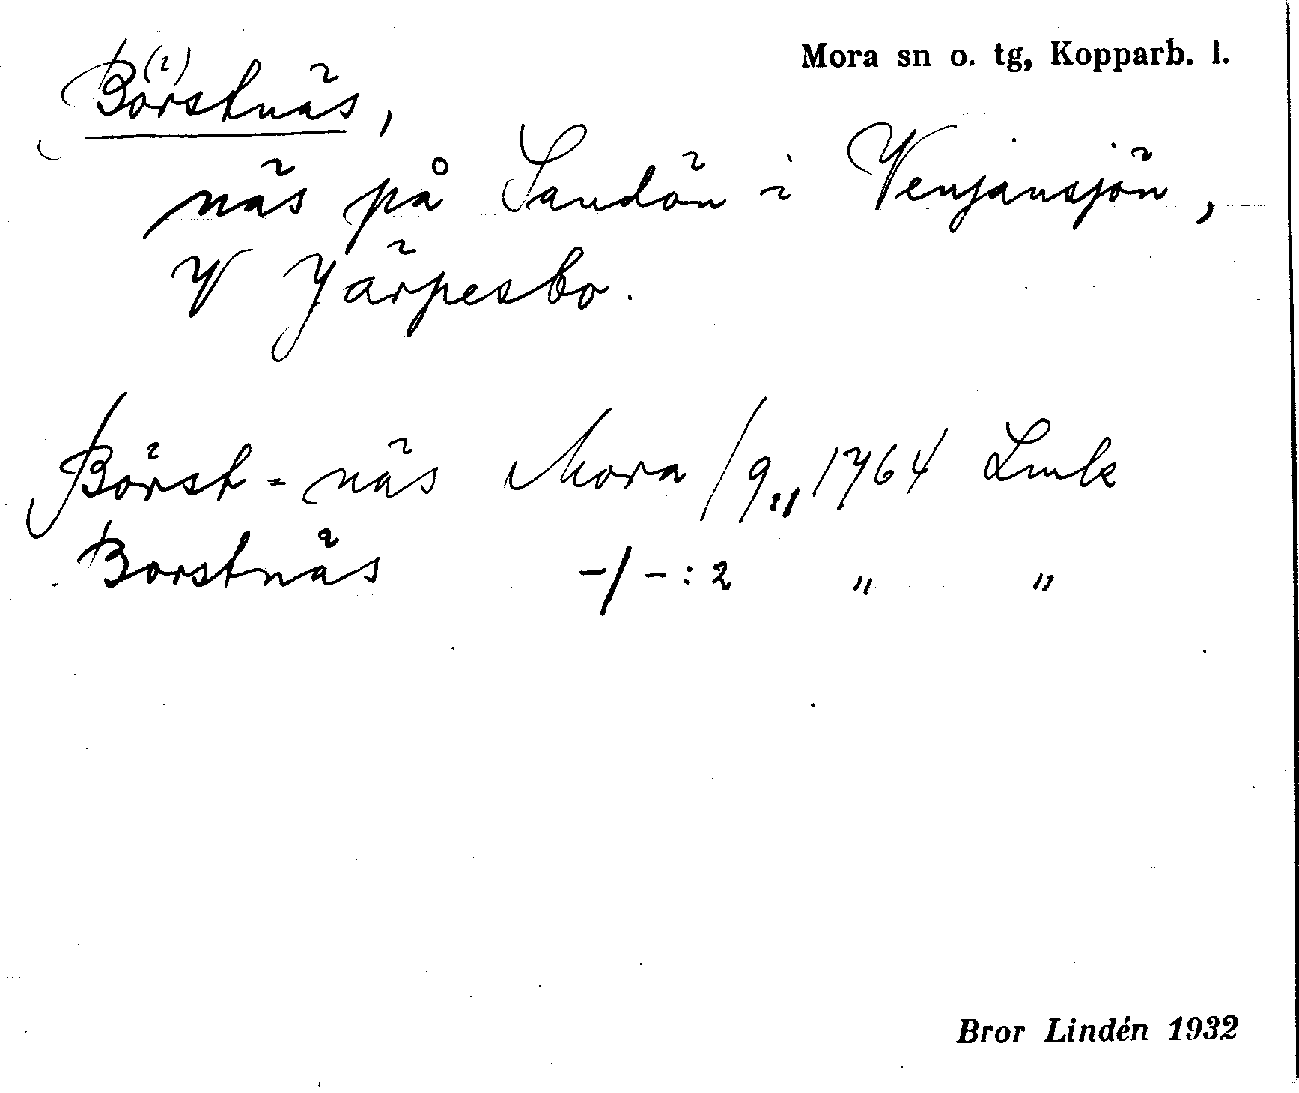 Mora sn o. tg, Kopparb. l.
Börstnäs,
näs på Sandön i Venjansjön,
V Järpesbo.
Börst-näs Mora / 9,, 1764 Lmk
Borstnäs -/-:2 " "
Bror Lindén 1932